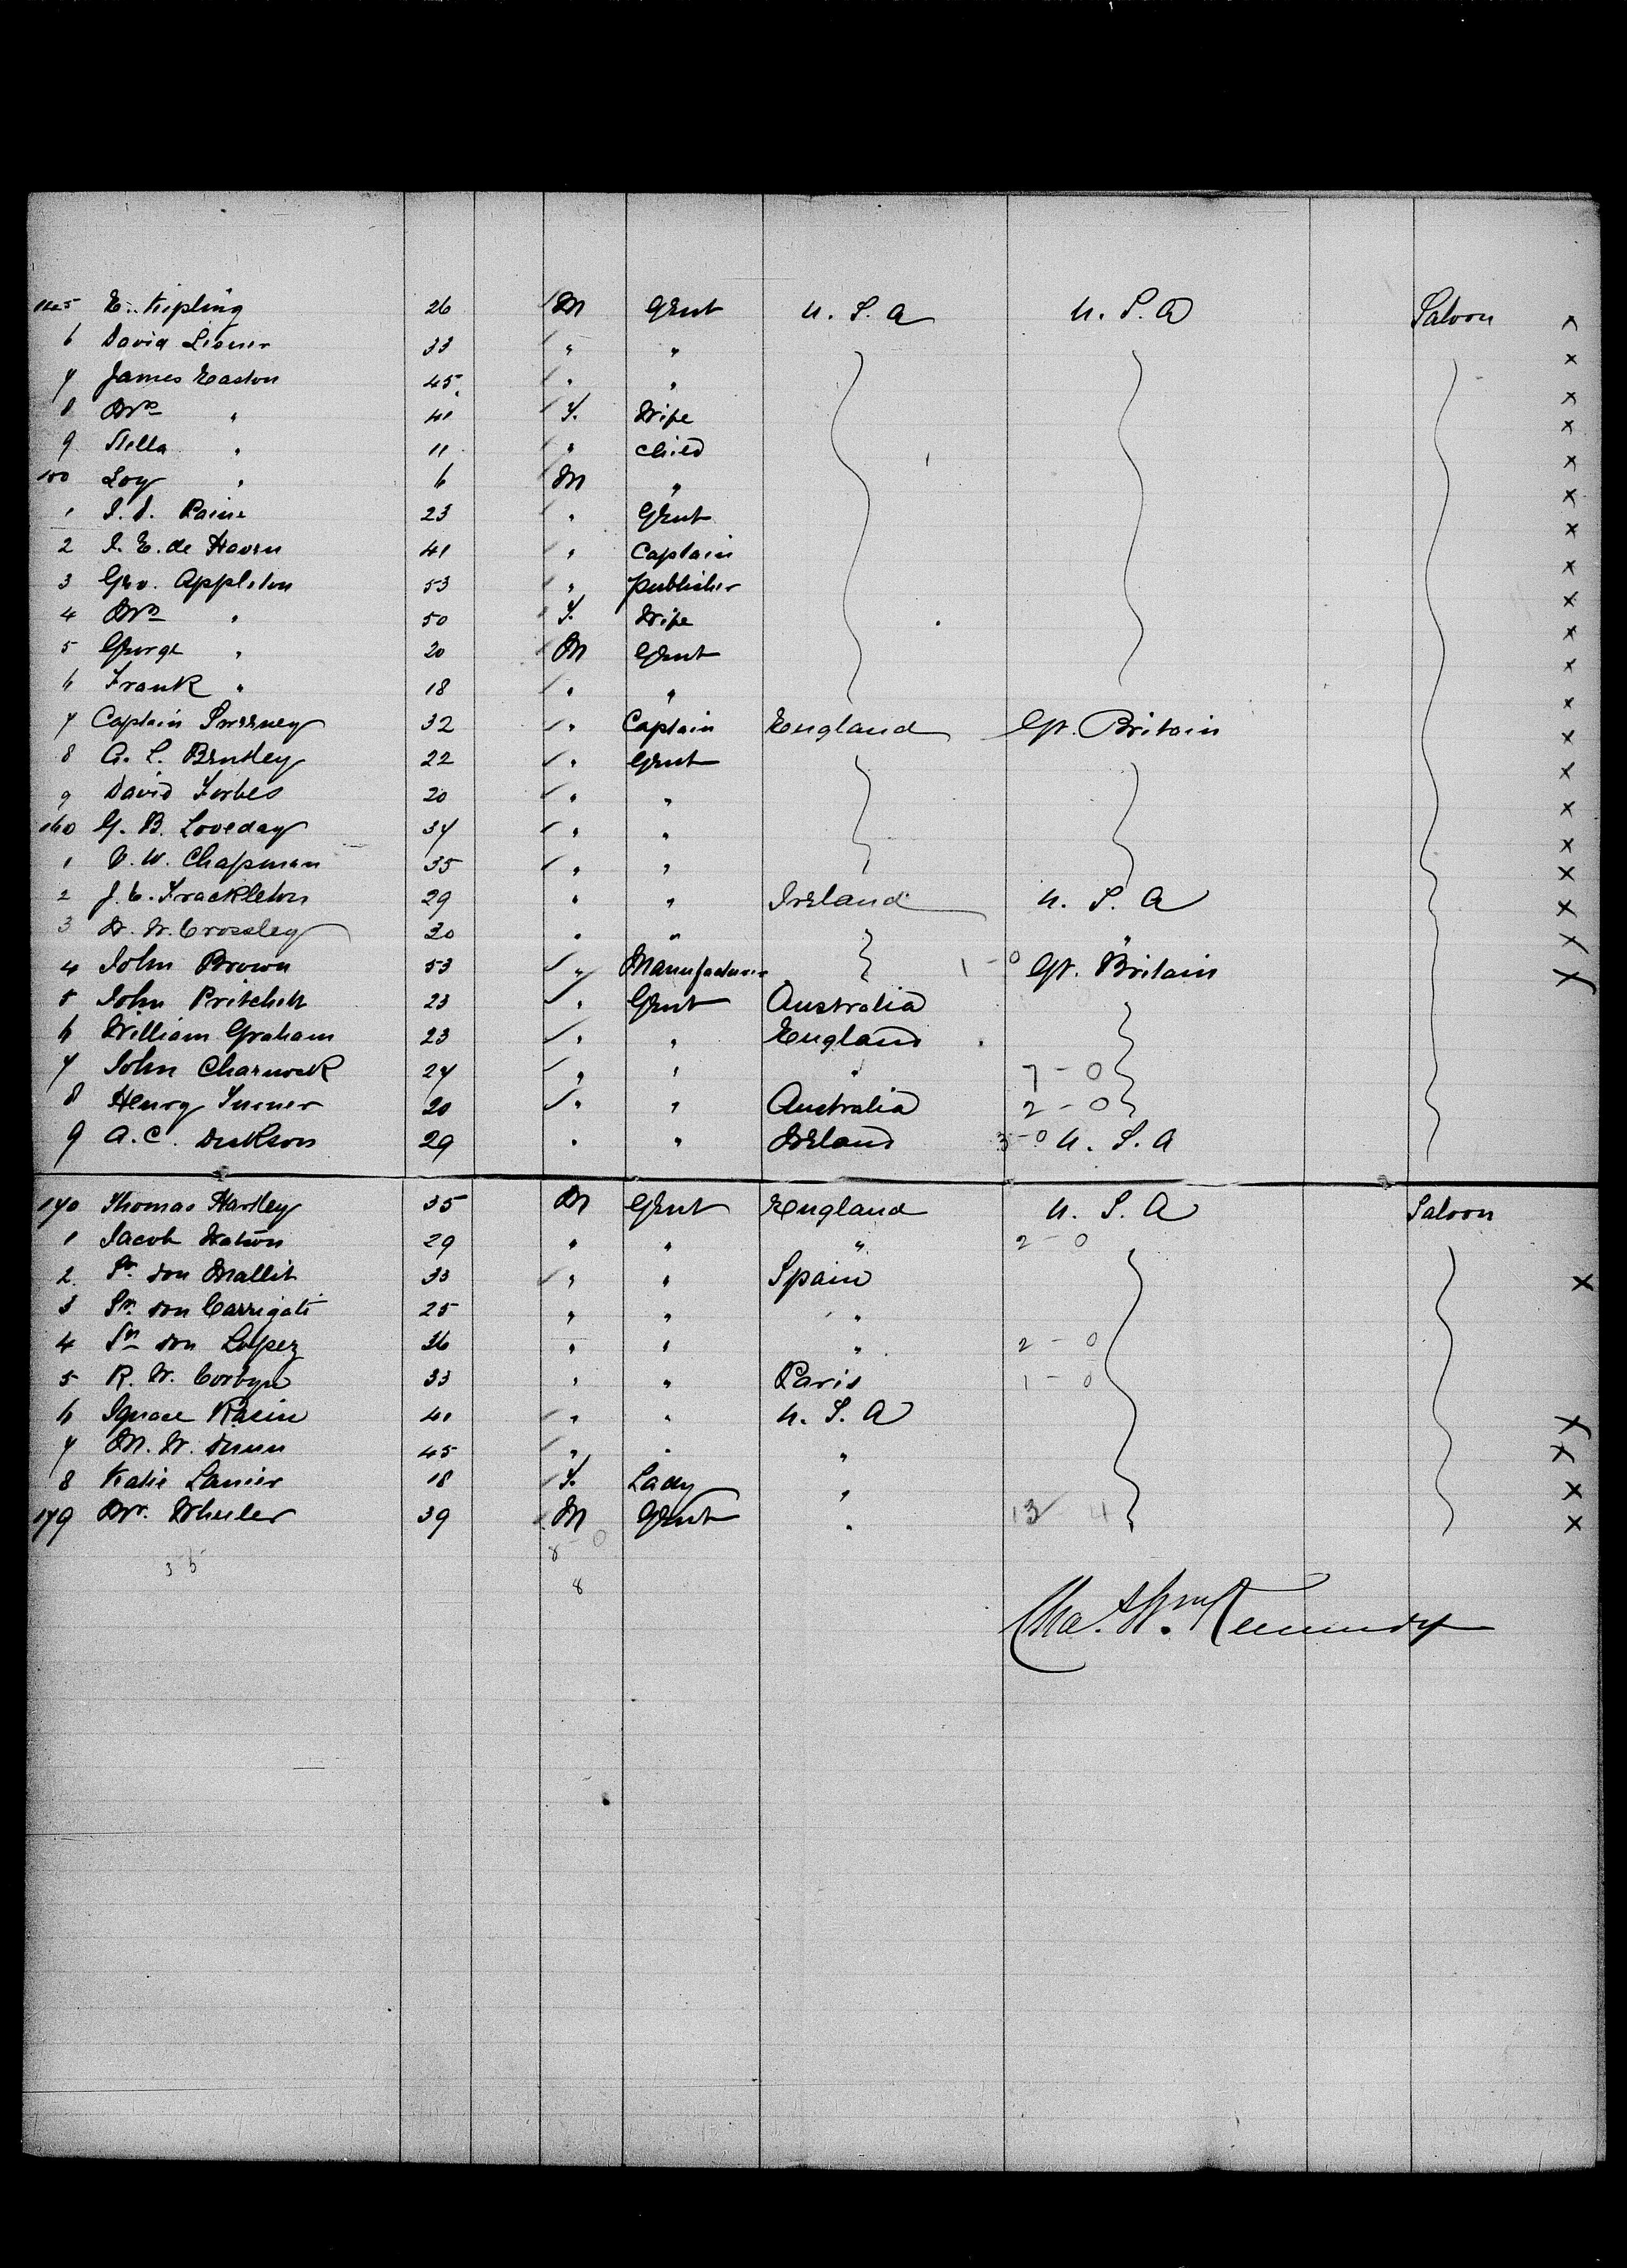 145 E. Kipling 26 M Gent U. S. A U. S. A Saloon x
6 David Lesner 33 " " x
7 James Easton 45 " " x
8 Mrs " 41 F. Wife x
9 Stella " 11 " child x
150 Loy " 6 M " x
1 Paine 23 " Gent x
2 E. de Haven 41 " Captain x
3 Geo. Appleton 53 " publisher x
4 Mrs " 50 F. Wife x
5 George " 20 M Gent x
6 Frank " 18 " " x
7 Captain Sweeney 32 " Captain England Gt. Britain x
8 A. L. Bentley 22 " Gent x
9 David Forbes 20 " " x
160 G. B. Loveday 34 " " x
1 W. Chapman 35 " " x
2 J. C. Frackleton 29 " " Ireland U. S. A x
3 W. Crossley 30 " " " x
4 John Brown 53 " Manufacturer 1 - 0 Gt. Britain x
5 John Pritchett 23 " Gent Australia
6 William Graham 23 " " England
7 John Charnock 27 " " " 7 - 0
8 Henry Turner 20 " " Australia 2 - 0
9 A. C. Dickson 29 " " Ireland 3 - 0 U. S. A
170 Thomas Hartley 35 M Gent England U. S. A Saloon
1 Jacob Watson 29 " " " 2 - 0
2 Sr. Don Mallit 33 " " Spain x
3 Sr. Don Carrigati 25 " " "
4 Sr. Don Lopez 36 " " " 2 - 0
5 R. W. Corbyn 33 " " Paris 1 - 0
6 Ignace 41 " " U. S. A x
7 M. W. Dunn 45 " " " x
8 Katie Lanier 18 F. Lady " x
179 Mr. Wheeler 39 M Gent " 13 4 x
35 8 - 0
8